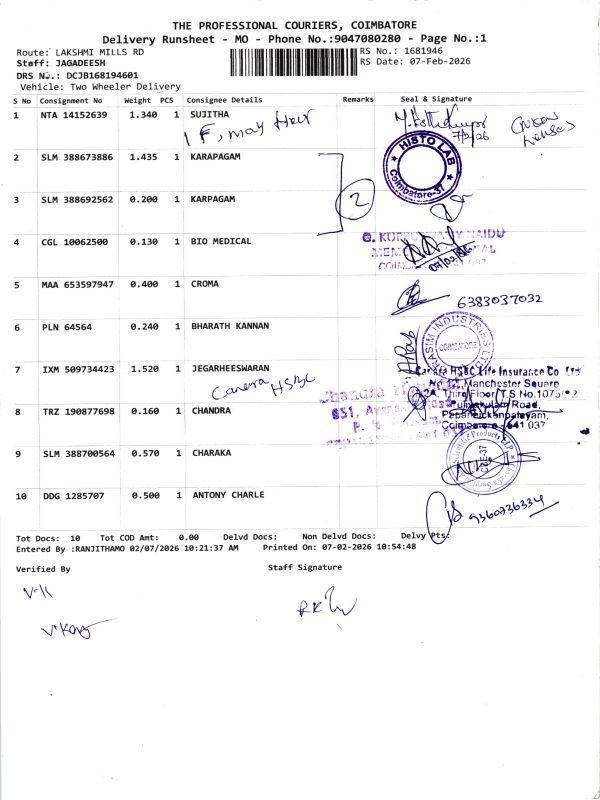 THE PROFESSIONAL COURIERS, COIMBATORE
Delivery Runsheet - MO - Phone No.:9047080280 - Page No.:1
Route: LAKSHMI MILLS RD
RS No.: 1681946
Staff: JAGADEESH
RS Date: 07-Feb-2026
DRS No.: DCJB168194601
Vehicle: Two Wheeler Delivery
S No Consignment No Weight PCS Consignee Details Remarks Seal & Signature
1 NTA 14152639 1.340 1 SUJITHA
7/2/26
2 SLM 388673886 1.435 1 KARAPAGAM
HISTO LAB
Coimbatore-37
2
3 SLM 388692562 0.200 1 KARPAGAM
4 CGL 10062500 0.130 1 BIO MEDICAL
5 MAA 653597947 0.400 1 CROMA
6383037032
6 PLN 64564 0.240 1 BHARATH KANNAN
INDUSTRIES
COIMBATORE
7 IXM 509734423 1.520 1 JEGARHEESWARAN
Canara HSBC
Canara HSBC Life Insurance Co. Ltd
Manchester Square
Third Floor, T.S.No.1075
8 TRZ 190877698 0.160 1 CHANDRA
Chandra
Puliyakulam Road,
Papanaickenpalayam,
Coimbatore - 641 037
9 SLM 388700564 0.570 1 CHARAKA
10 DDG 1285707 0.500 1 ANTONY CHARLE
9360736334
Tot Docs: 10 Tot COD Amt: 0.00 Delvd Docs: Non Delvd Docs: Delvy Pts:
Entered By :RANJITHAMO 02/07/2026 10:21:37 AM Printed On: 07-02-2026 10:54:48
Verified By Staff Signature